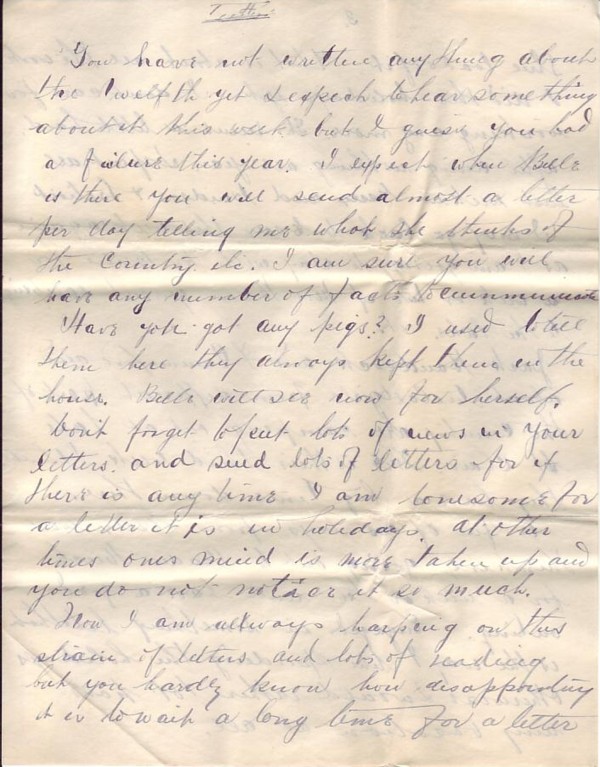 You have not written anything about
the Twelfth yet I expect to hear something
about it this week but I guess you had
a failure this year. I expect when Belle
is there you will send almost a letter
per day telling me what she thinks of
the Country etc. I am sure you will
have any number of facts to communicate
Have you got any pigs? I used to tell
them here they always kept them in the
house. Belle will see now for herself.
Don't forget to put lots of news in your
letters. and send lots of letters for if
there is any time I am lonesome for
a letter it is in holidays. at other
times ones mind is more taken up and
you do not notice it so much.
Now I am allways harping on this
strain of letters and lots of reading
but you hardly know how disappointing
it is to wait a long time for a letter